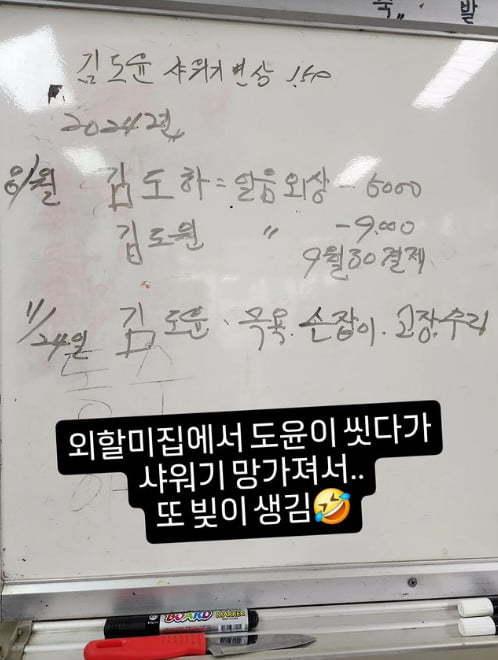 축 발
김도윤 샤워기변상 1.50
2024년
8/월 김도하 = 얼음외상 - 6000
김도윤 〃 -9.000
9월30결제
11/24일 김도윤、목욕.손잡이.고장.수리
외할미집에서 도윤이 씻다가
샤워기 망가져서..
또 빚이 생김🤣
BOARD MARKER